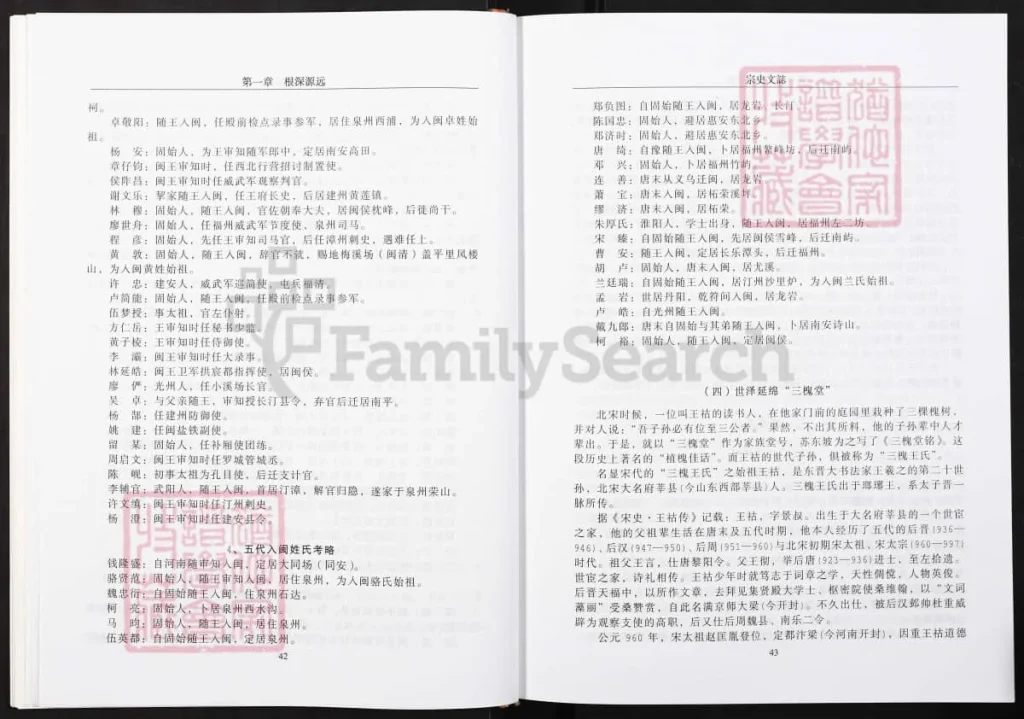 第一章　根深源远
祠。
卓敬阳：随王入闽，任殿前检点录事参军，居住泉州西浦，为入闽卓姓始
祖。
杨　安：固始人，为王审知随军郎中，定居南安高田。
章仔钧：闽王审知时，任西北行营招讨制置使。
侯阼昌：闽王审知时任威武军观察判官。
谢文乐：挈家随王入闽，任王府长史，后居建州黄莲镇。
林　穆：固始人，随王入闽，官佐朝奉大夫，居闽侯枕峰，后徙尚干。
廖世舟：固始人，任福州威武军节度使、泉州司马。
程　彦：固始人，先任王审知司马官，后任漳州刺史，遇难任上。
黄　敦：固始人，随王入闽，辞官不就，赐地梅溪场（闽清）盖平里凤楼
山，为入闽黄姓始祖。
许　忠：建安人，威武军巡简使，屯兵福清。
卢简能：固始人，随王入闽，任殿前检点录事参军。
伍梦授：事太祖，官左仆射。
方仁岳：王审知时任秘书少监。
黄子棱：王审知时任侍御使。
李　灞：闽王审知时任大录事。
林延皓：闽王卫军拱宸都指挥使，居闽侯。
廖　俨：光州人，任小溪场长官。
吴　卓：与父亲随王，审知授长汀县令，弃官后迁居南平。
杨　郜：任建州防御使。
姚　建：任闽盐铁副使。
留　某：固始人，任补厢使团练。
周启文：闽王审知时任罗城管城丞。
陈　岘：初事太祖为孔目使，后迁支计官。
李辅官：武阳人，随王入闽，首居汀漳，解官归隐，遂家于泉州荣山。
许文缜：闽王审知时任汀州刺史。
杨　澄：闽王审知时任建安县令。
4、五代入闽姓氏考略
钱隆盛：自河南随审知入闽，定居大同场（同安）。
骆贤范：固始人，随王审知入闽，居住泉州，为入闽骆氏始祖。
魏忠衍：自固始随王入闽，住泉州石达。
柯　亮：固始人，卜居泉州西水沟。
马　昀：固始人，随王入闽，居住泉州。
伍英都：自固始随王入闽，定居泉州。
42
宗史文誌
郑负图：自固始随王入闽，居龙岩、长汀
陈国忠：固始人，避居惠安东北乡。
郑济时：固始人，避居惠安东北乡。
唐　绮：自豫随王入闽，卜居福州紫峰坊，后迁南屿。
邓　兴：固始人，卜居福州竹屿。
连　善：唐末从义乌迁闽，居龙岩。
萧　宝：唐末入闽，居柘荣溪坪。
缪　济：唐末入闽，居柘荣。
朱厚氏：淮阳人，学士出身，随王入闽，居福州左二坊
宋　臻：自固始随王入闽，先居闽侯雪峰，后迁南屿。
曹　安：随王入闽，定居长乐潭头，后迁福州。
胡　卢：固始人，唐末入闽，居尤溪。
兰廷瑞：自固始随王入闽，居汀州沙里炉，为入闽兰氏始祖。
孟　岩：世居丹阳，乾符间入闽，居龙岩。
卢　皓：自光州随王入闽。
戴九郎：唐末自固始与其弟随王入闽，卜居南安诗山。
柯　裕：固始人，随王入闽，定居闽侯。
（四）世泽延绵“三槐堂”
北宋时候，一位叫王祜的读书人，在他家门前的庭园里栽种了三棵槐树，
并对人说：“吾子孙必有位至三公者。”果然，不出其所料，他的子孙辈中人才
辈出。于是，就以“三槐堂”作为家族堂号，苏东坡为之写了《三槐堂铭》。这
段历史上著名的“植槐佳话”。而王祜的世代子孙，俱被称为“三槐王氏”。
名显宋代的“三槐王氏”之始祖王祜，是东晋大书法家王羲之的第二十世
孙，北宋大名府莘县（今山东西部莘县）人。三槐王氏出于琅琊王，系太子晋一
脉所传。
据《宋史·王祜传》记载：王祜，字景叔。出生于大名府莘县的一个世宦
之家，他的父祖辈生活在唐末及五代时期，他本人经历了五代的后晋（936—
946）、后汉（947—950）、后周（951—960）与北宋初期宋太祖、宋太宗（960—997）
时代。祖父王言，仕唐黎阳令。父王彻，举后唐（923—936）进士，至左拾遗。
世宦之家，诗礼相传。王祜少年时就笃志于词章之学，天性倜傥，人物英俊。
后晋天福中，以所作文章，去拜见集贤殿大学士、枢密院使桑维翰，以“文词
藻丽”受桑赞赏，自此名满京师大梁（今开封）。不久出仕，被后汉邺帅杜重威
辟为观察支使的高职，后又仕后周魏县、南乐二令。
公元 960 年，宋太祖赵匡胤登位，定都汴梁（今河南开封），因重王祜道德
43
FamilySearch